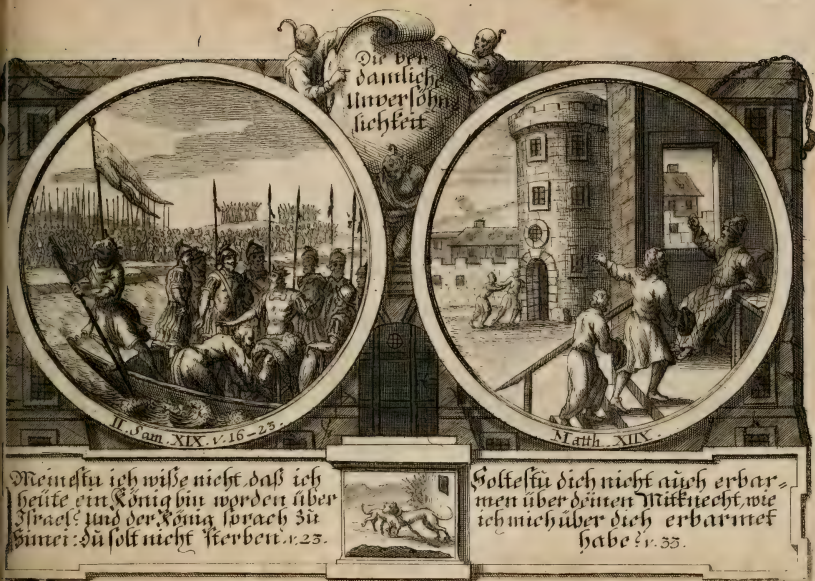 Die ver
damliche
Unversöhn
lichkeit
II. Sam. XIX. v. 16-23.
Matth. XIIX.
Meinestu ich wiße nicht, daß ich
heute ein König bin worden über
Israel? Und der König sprach zu
Simei: du solt nicht sterben. v. 23.
Soltestu dich nicht auch erbar-
men über deinen Mitknecht, wie
ich mich über dich erbarmet
habe? v. 33.